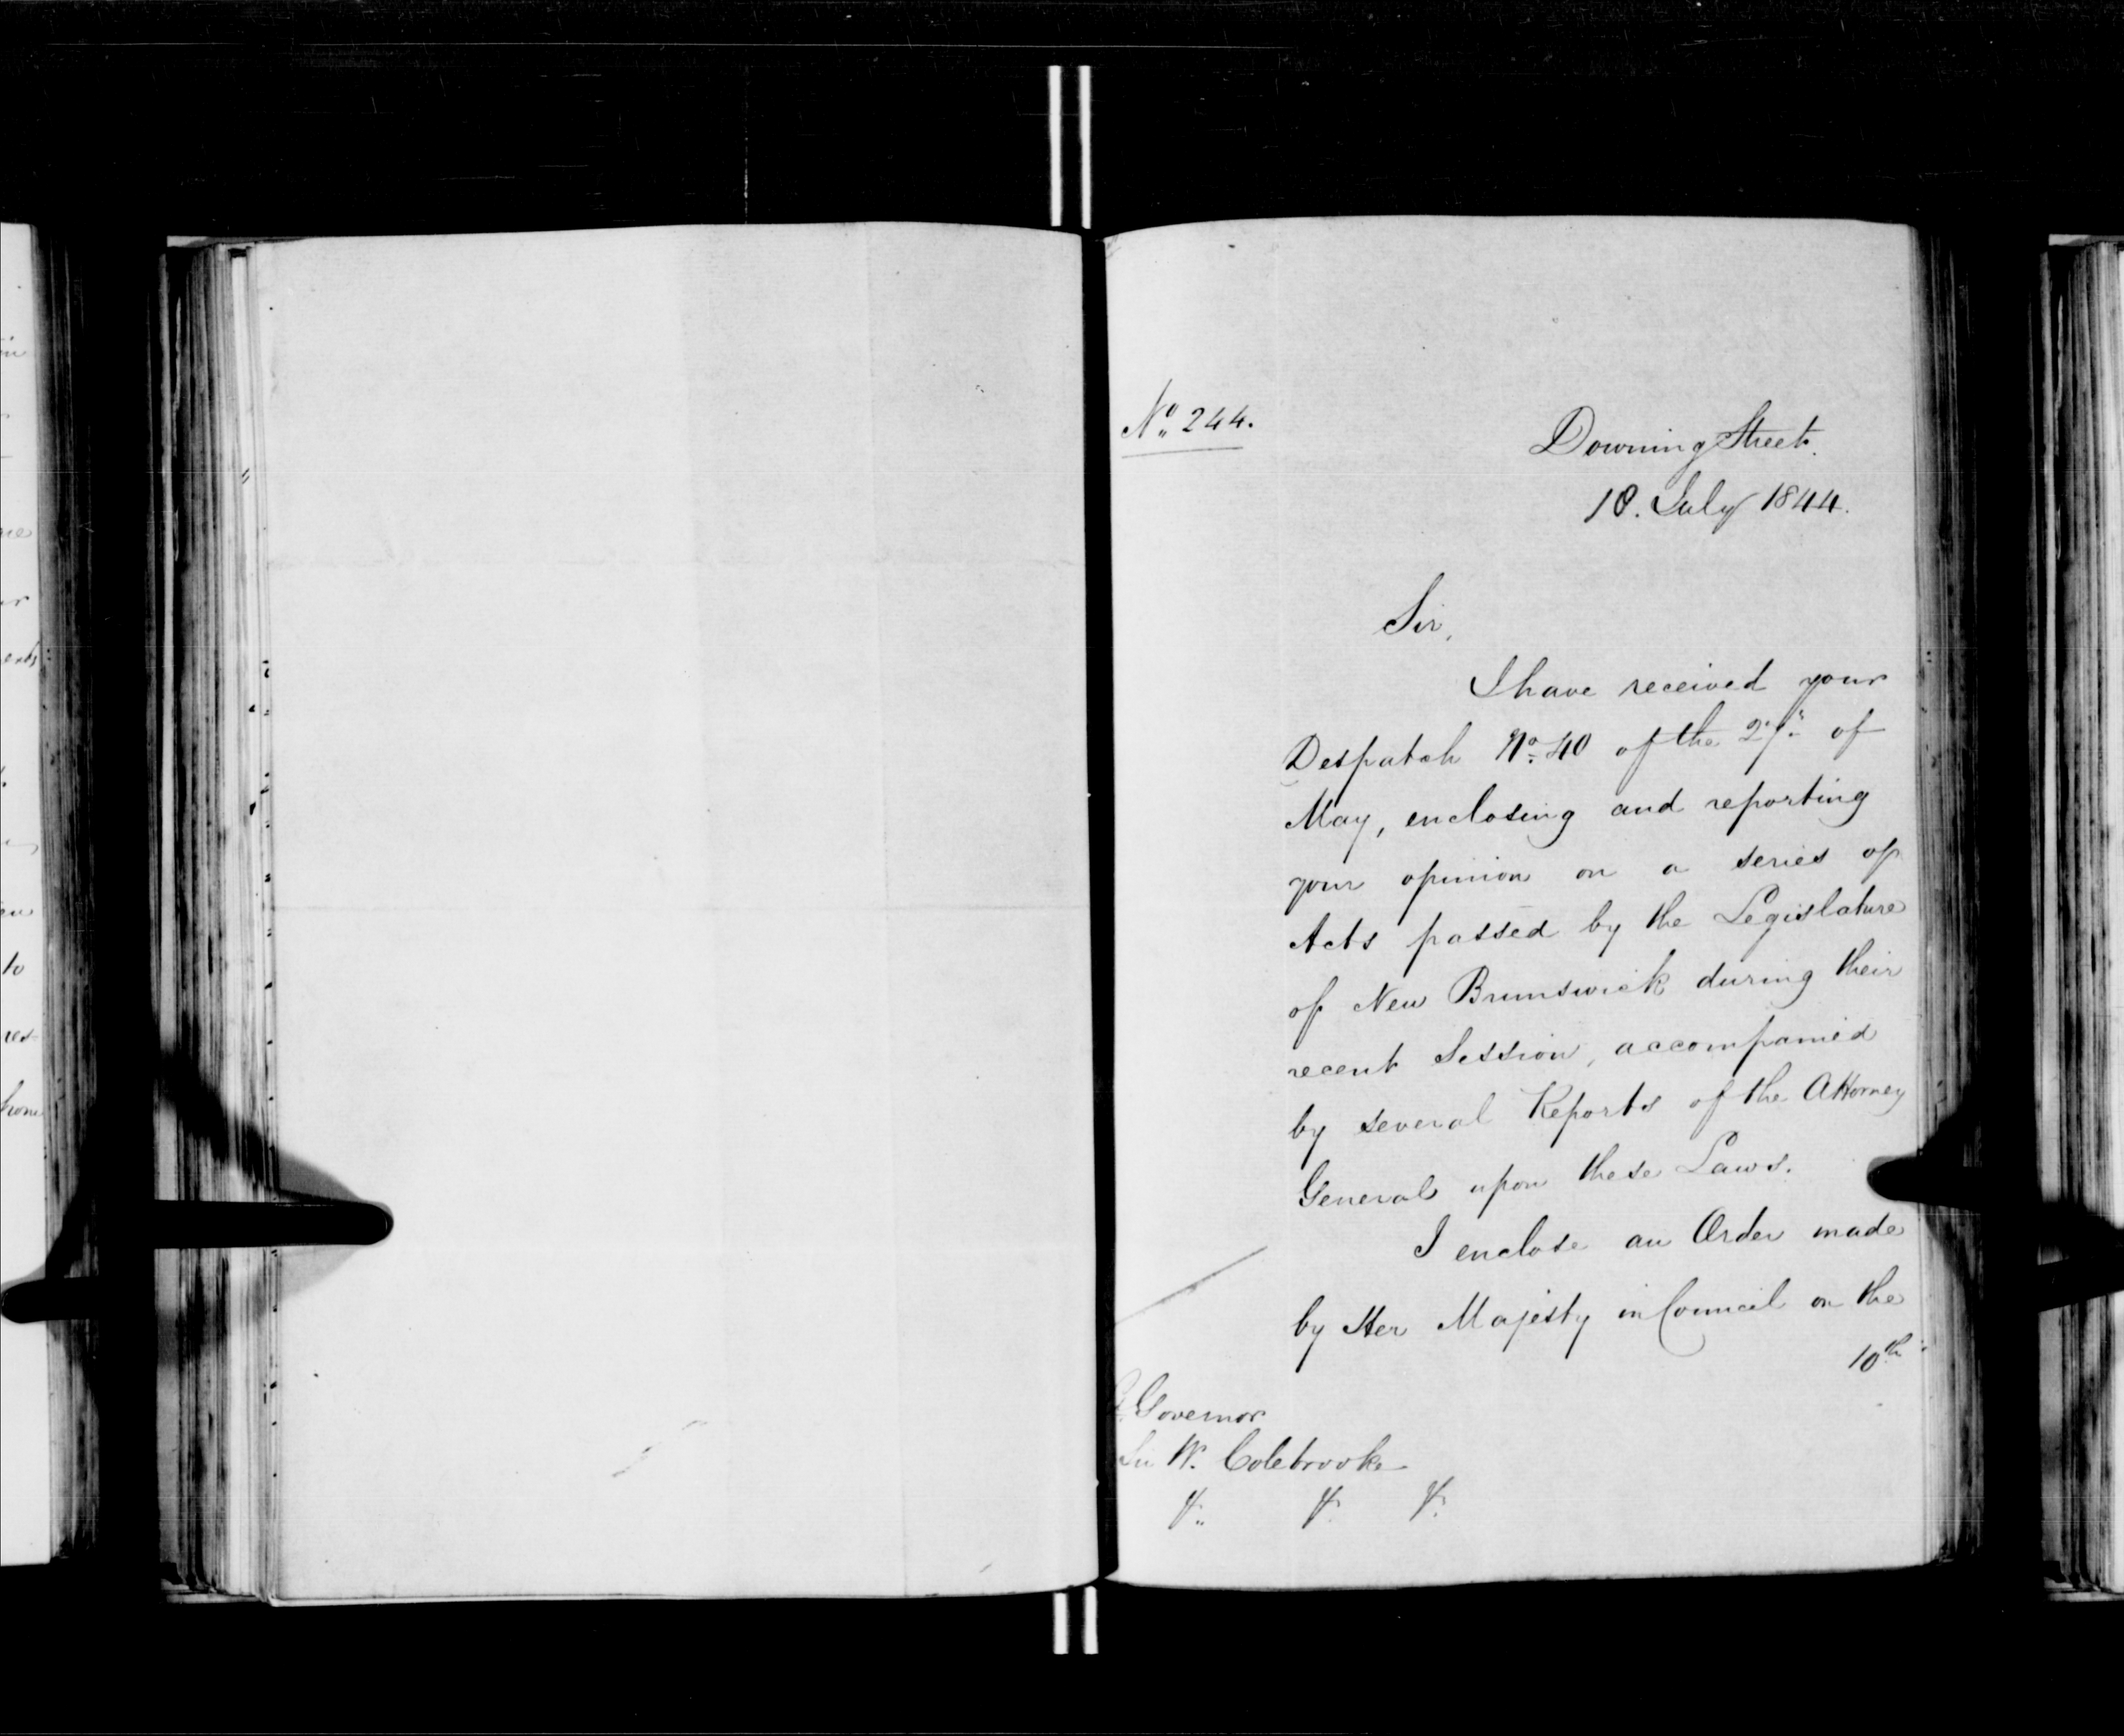 No. 244.
Downing Street.
18. July 1844.
Sir,
I have received your
Despatch No. 40 of the 27th of
May, enclosing and reporting
your opinion on a series of
Acts passed by the Legislature
of New Brunswick during their
recent Session, accompanied
by several Reports of the Attorney
General upon these Laws.
I enclose an Order made
by Her Majesty in Council on the
10th
Governor
Sir W. Colebrooke
&c. &c. &c.